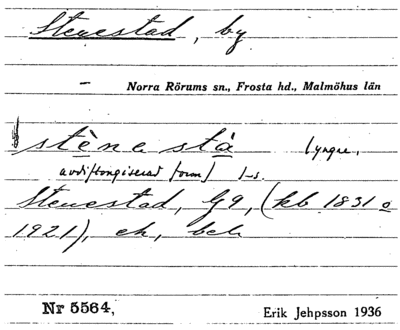 Stenestad, by
– Norra Rörums sn., Frosta hd., Malmöhus län
stènestà (yngre,
avdiftongiserad form) l-s.
Stenestad, G9, (kb 1831 o
1921), ek, bek
Nr 5564, Erik Jehpsson 1936